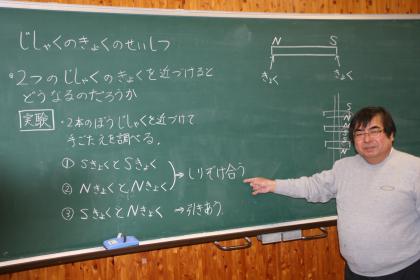 じしゃくのきょくのせいしつ
◎2つのじしゃくのきょくを近づけると
どうなるのだろうか
実験 ・2本のぼうじしゃくを近づけて
手ごたえを調べる。
① SきょくとSきょく
② NきょくとNきょく
→しりぞけ合う
③ SきょくとNきょく →引きあう
N S
きょく きょく
S
N
N
S